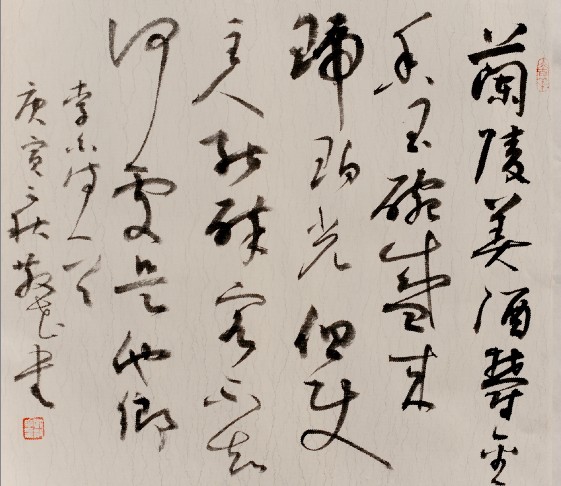 蘭陵美酒欝金
香玉碗盛来
琥珀光但使
主人能醉客不知
何處是他鄉
李白诗一首
庚寅之秋书